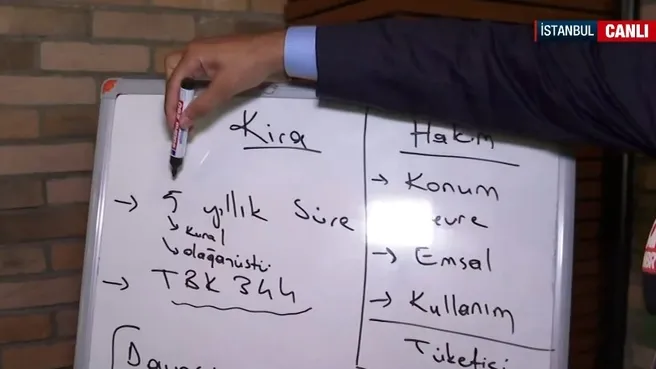 İSTANBUL CANLI
Kira
→ 5 yıllık Süre
↳ kural
↳ olağanüstü
→ TBK 344
Hakim
→ Konum
evre
→ Emsal
→ Kullanım
Tüketici